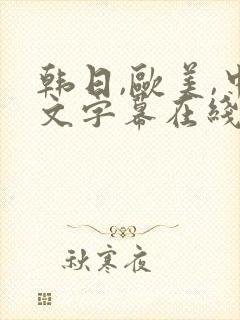 韩日,欧美,中
文字幕在线
秋寒夜